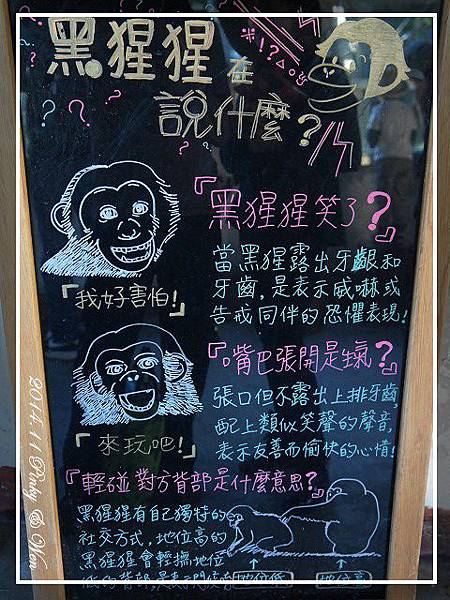 黑猩猩在
說什麼?
『黑猩猩笑了?』
當黑猩露出牙齦和
牙齒,是表示威嚇或
告戒同伴的恐懼表現!
「我好害怕!」
『嘴巴張開是生氣?』
張口但不露出上排牙齒,
配上類似笑聲的聲音,
表示友善而愉快的心情!
「來玩吧!」
『輕碰對方背部是什麼意思?』
黑猩猩有自己獨特的
社交方式,地位高的
黑猩猩會輕撫地位
低的背部,表示
地位低
地位高
2014.11 Pinky & Wen